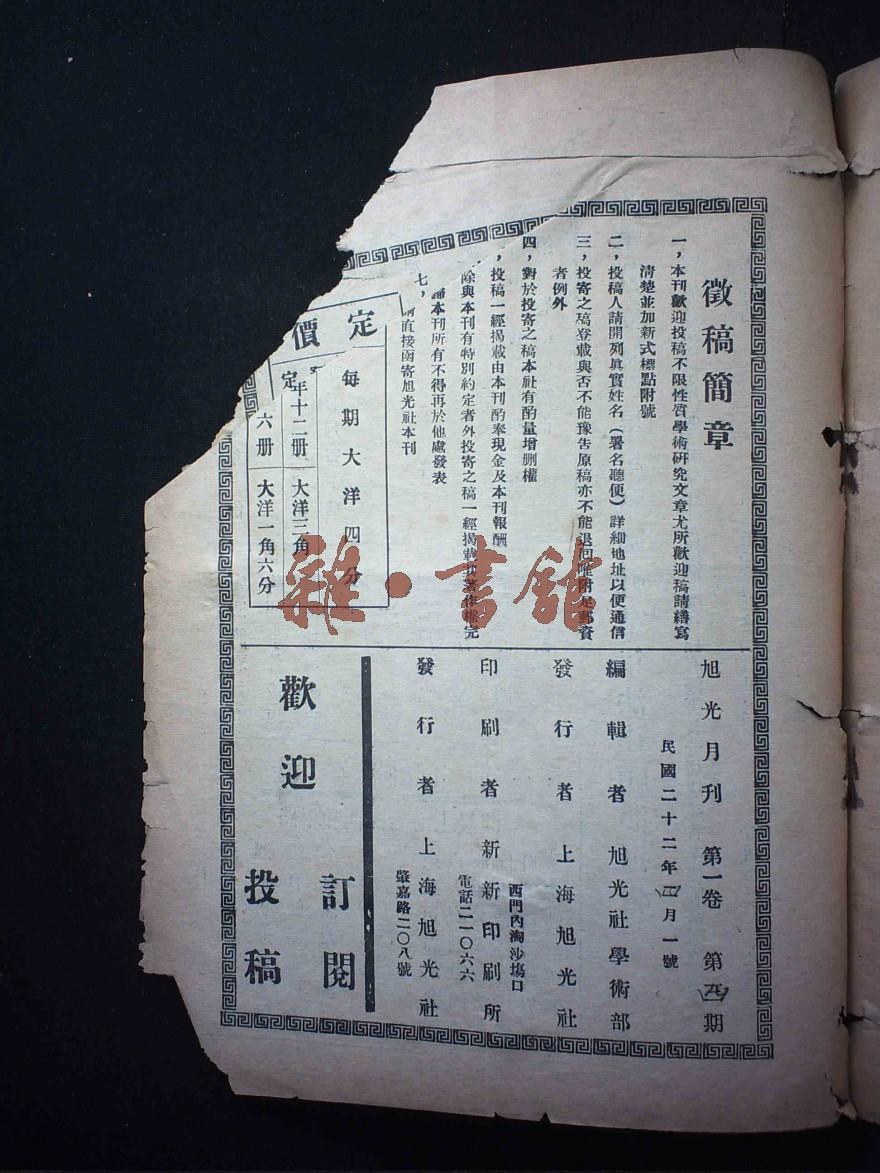 徵稿簡章
一，本刊歡迎投稿不限性質學術研究文章尤所歡迎稿請繕寫
清楚並加新式標點附號
二，投稿人請開列眞實姓名（署名聽便）詳細地址以便通信
三，投寄之稿登載與否不能豫告原稿亦不能退回惟附足郵資
者例外
四，對於投寄之稿本社有酌量增删權
，投稿一經揭載由本刊酌奉現金及本刊報酬
除與本刊有特別約定者外投寄之稿一經揭載其著作權完
歸本刊所有不得再於他處發表
七，
直接函寄旭光社本刊
定價
每期大洋四分
定
年十二册 大洋三角
六册 大洋一角六分
旭光月刊 第一卷 第 期
民國二十二年 月一號
編輯者 旭光社學術部
發行者 上海旭光社
西門內淘沙塲口
印刷者 新新印刷所
電話二一〇六六
發行者 上海旭光社
肇嘉路二〇八號
歡迎
訂閱
投稿
雜·書館